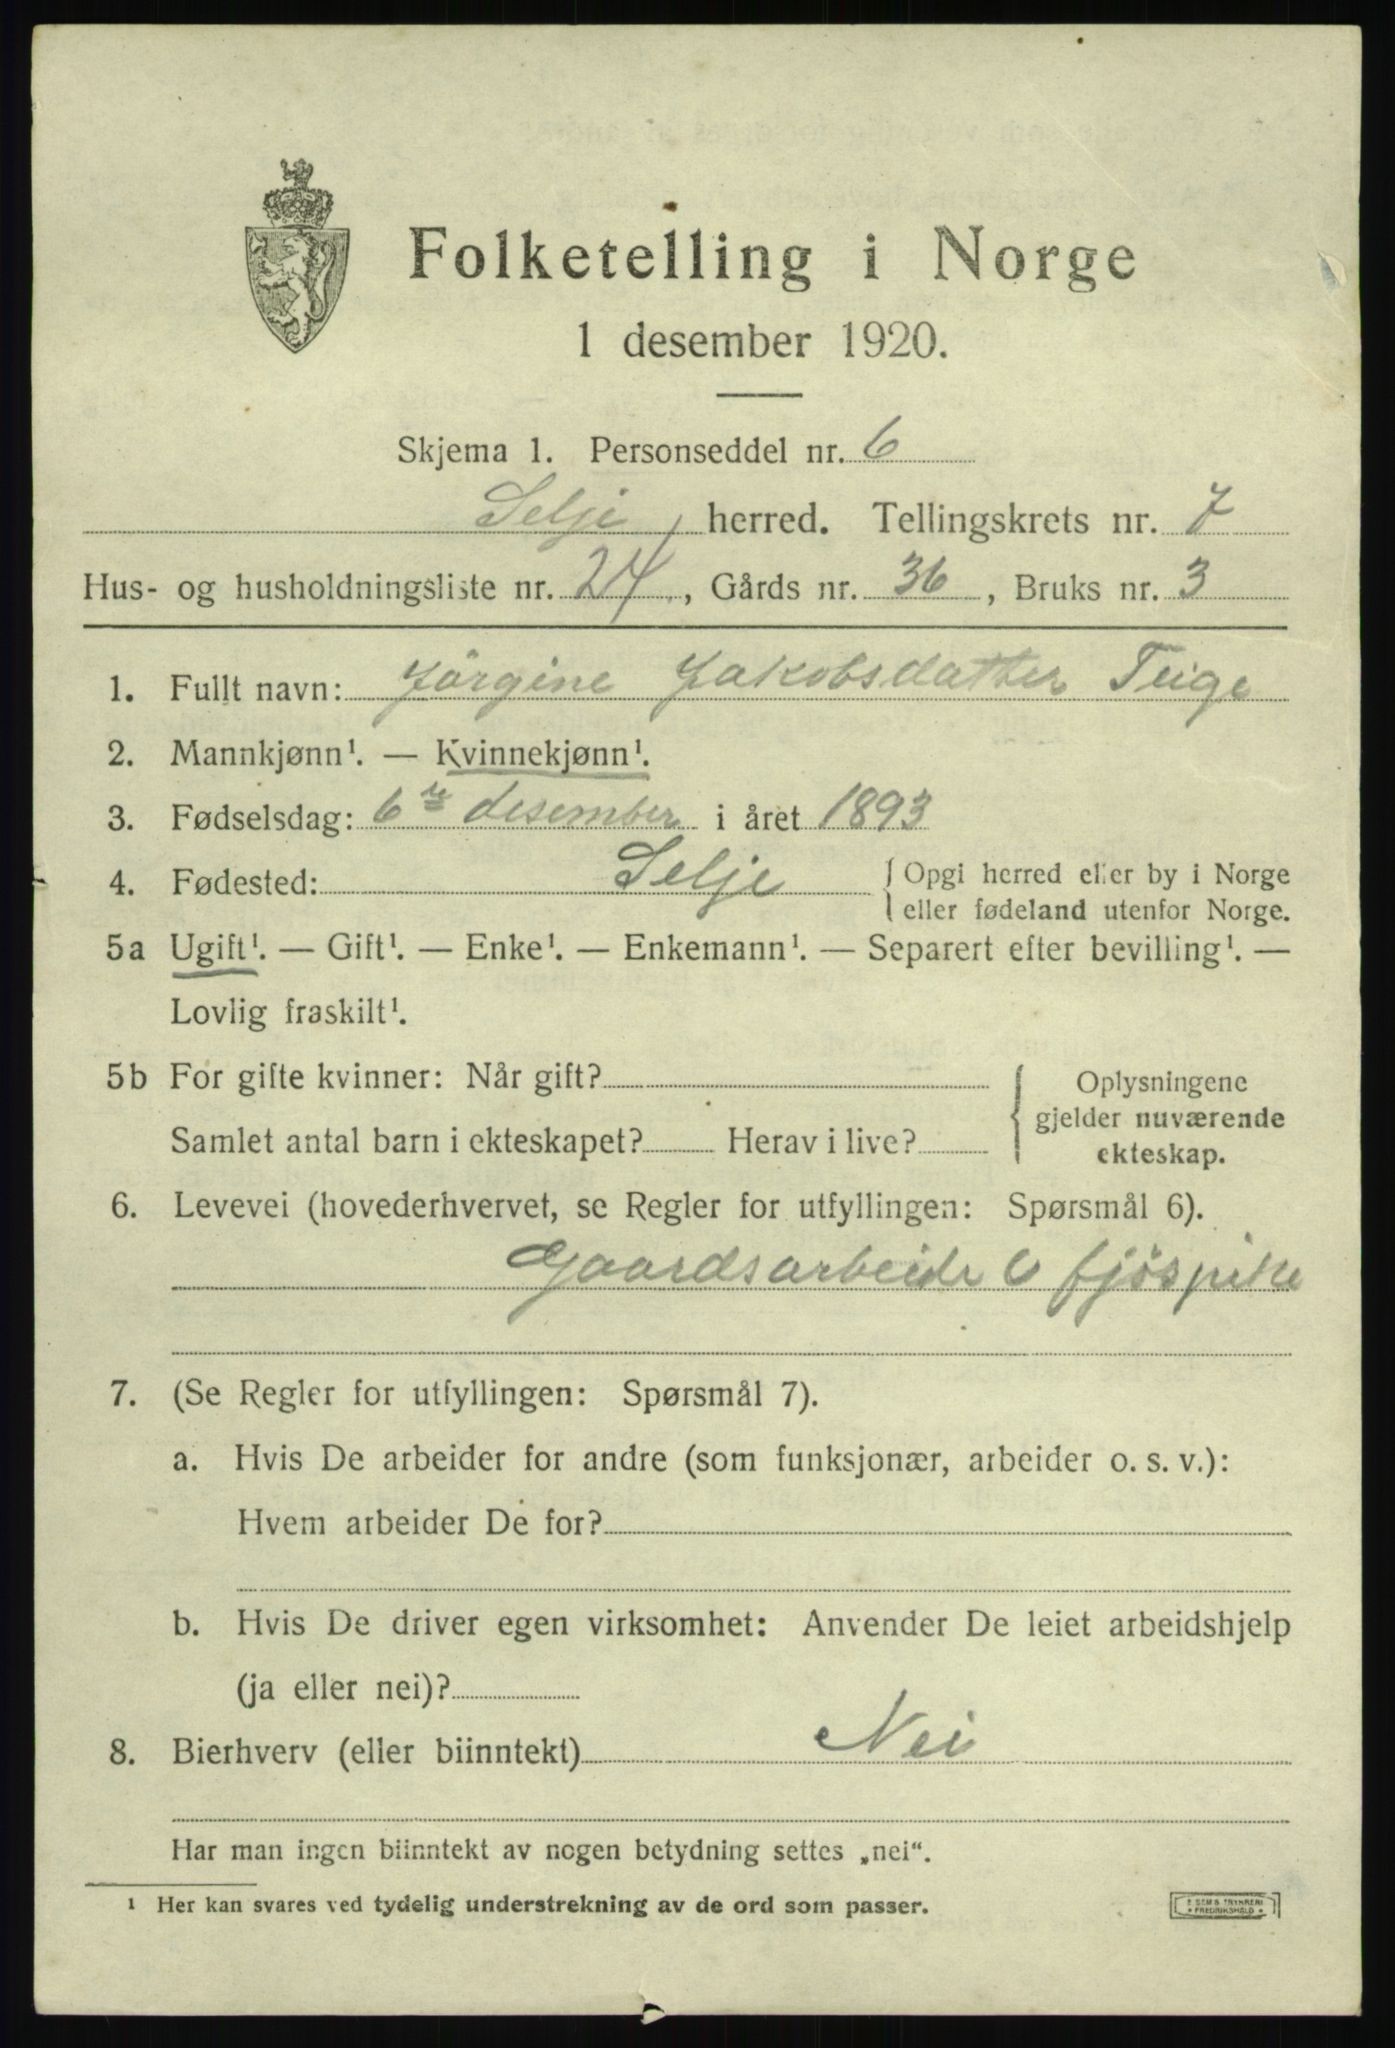 Folketelling i Norge
1 desember 1920.
Skjema 1. Personseddel nr. 6
Selje herred. Tellingskrets nr. 7
Hus- og husholdningsliste nr. 24, Gårds nr. 36, Bruks nr. 3
1. Fullt navn: Jörgine Jakobsdatter Teige
2. Mannkjønn¹. — Kvinnekjønn¹.
3. Fødselsdag: 6te desember i året 1893
4. Fødested: Selje { Opgi herred eller by i Norge
eller fødeland utenfor Norge.
5a Ugift¹. — Gift¹. — Enke¹. — Enkemann¹. — Separert efter bevilling¹. —
Lovlig fraskilt¹.
5b For gifte kvinner: Når gift?
Samlet antal barn i ekteskapet? Herav i live?
{ Oplysningene
gjelder nuværende
ekteskap.
6. Levevei (hovederhvervet, se Regler for utfyllingen: Spørsmål 6).
Gaardsarbeide fjöspike
7. (Se Regler for utfyllingen: Spørsmål 7).
a. Hvis De arbeider for andre (som funksjonær, arbeider o. s. v.):
Hvem arbeider De for?
b. Hvis De driver egen virksomhet: Anvender De leiet arbeidshjelp
(ja eller nei)?
8. Bierhverv (eller biinntekt) Nei
Har man ingen biinntekt av nogen betydning settes „nei“.
¹ Her kan svares ved tydelig understrekning av de ord som passer.
SEMS TRYKKERI
FREDRIKSHALD